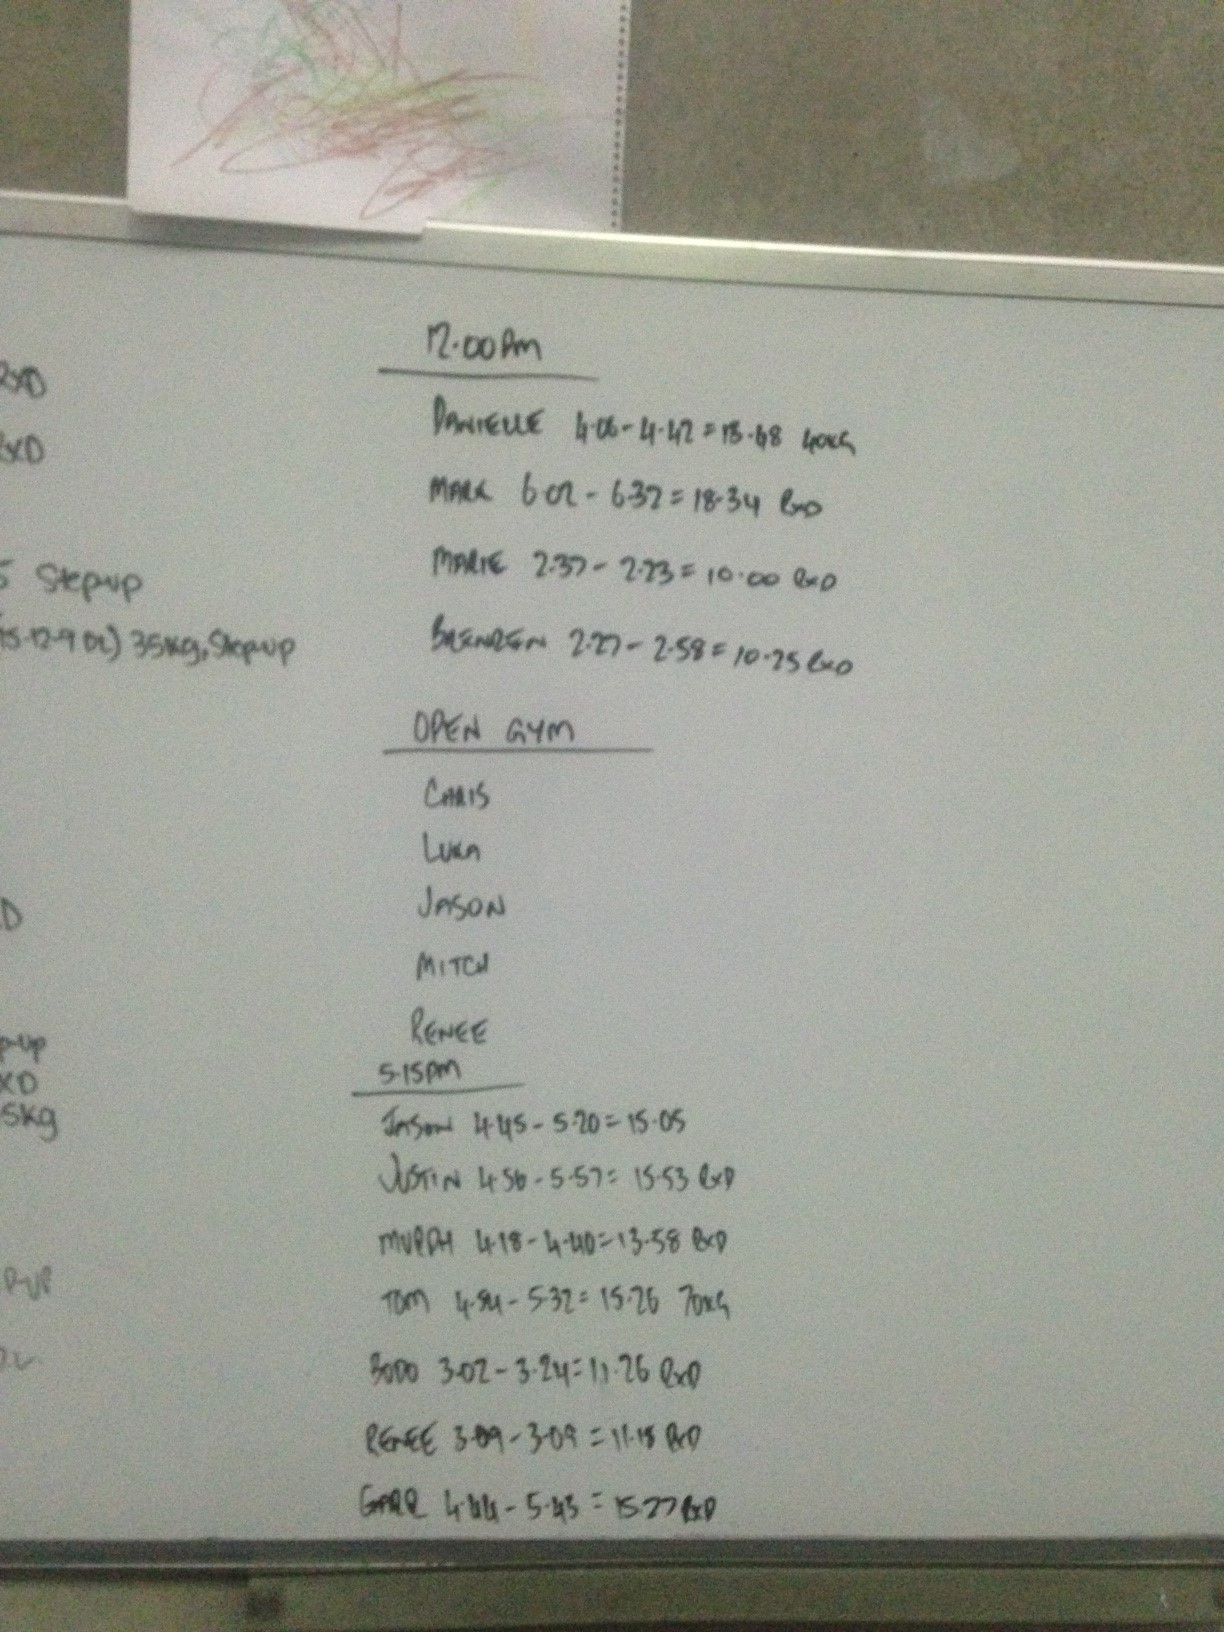 RXD
RXD
5 Step-up
(15-12-9 DL) 35kg, Step-up
D
p-up
XD
5kg
P-UP
12.00pm
DANIELLE 4.06-4.42=13.48 40KG
MARK 6.02-6.32=18.34 RXD
MARIE 2.37-2.23=10.00 RXD
BRENDEN 2.27-2.58=10.25 RXD
OPEN GYM
CHRIS
LUKA
JASON
MITCH
RENEE
5.15PM
JASON 4.45-5.20=15.05
JUSTIN 4.56-5.57=15.53 RXD
MURPH 4.18-4.40=13.58 RXD
TOM 4.54-5.32=15.26 70KG
BODO 3.02-3.24=11.26 RXD
RENEE 3.09-3.09=11.18 RXD
GARR 4.44-5.43=15.27 RXD